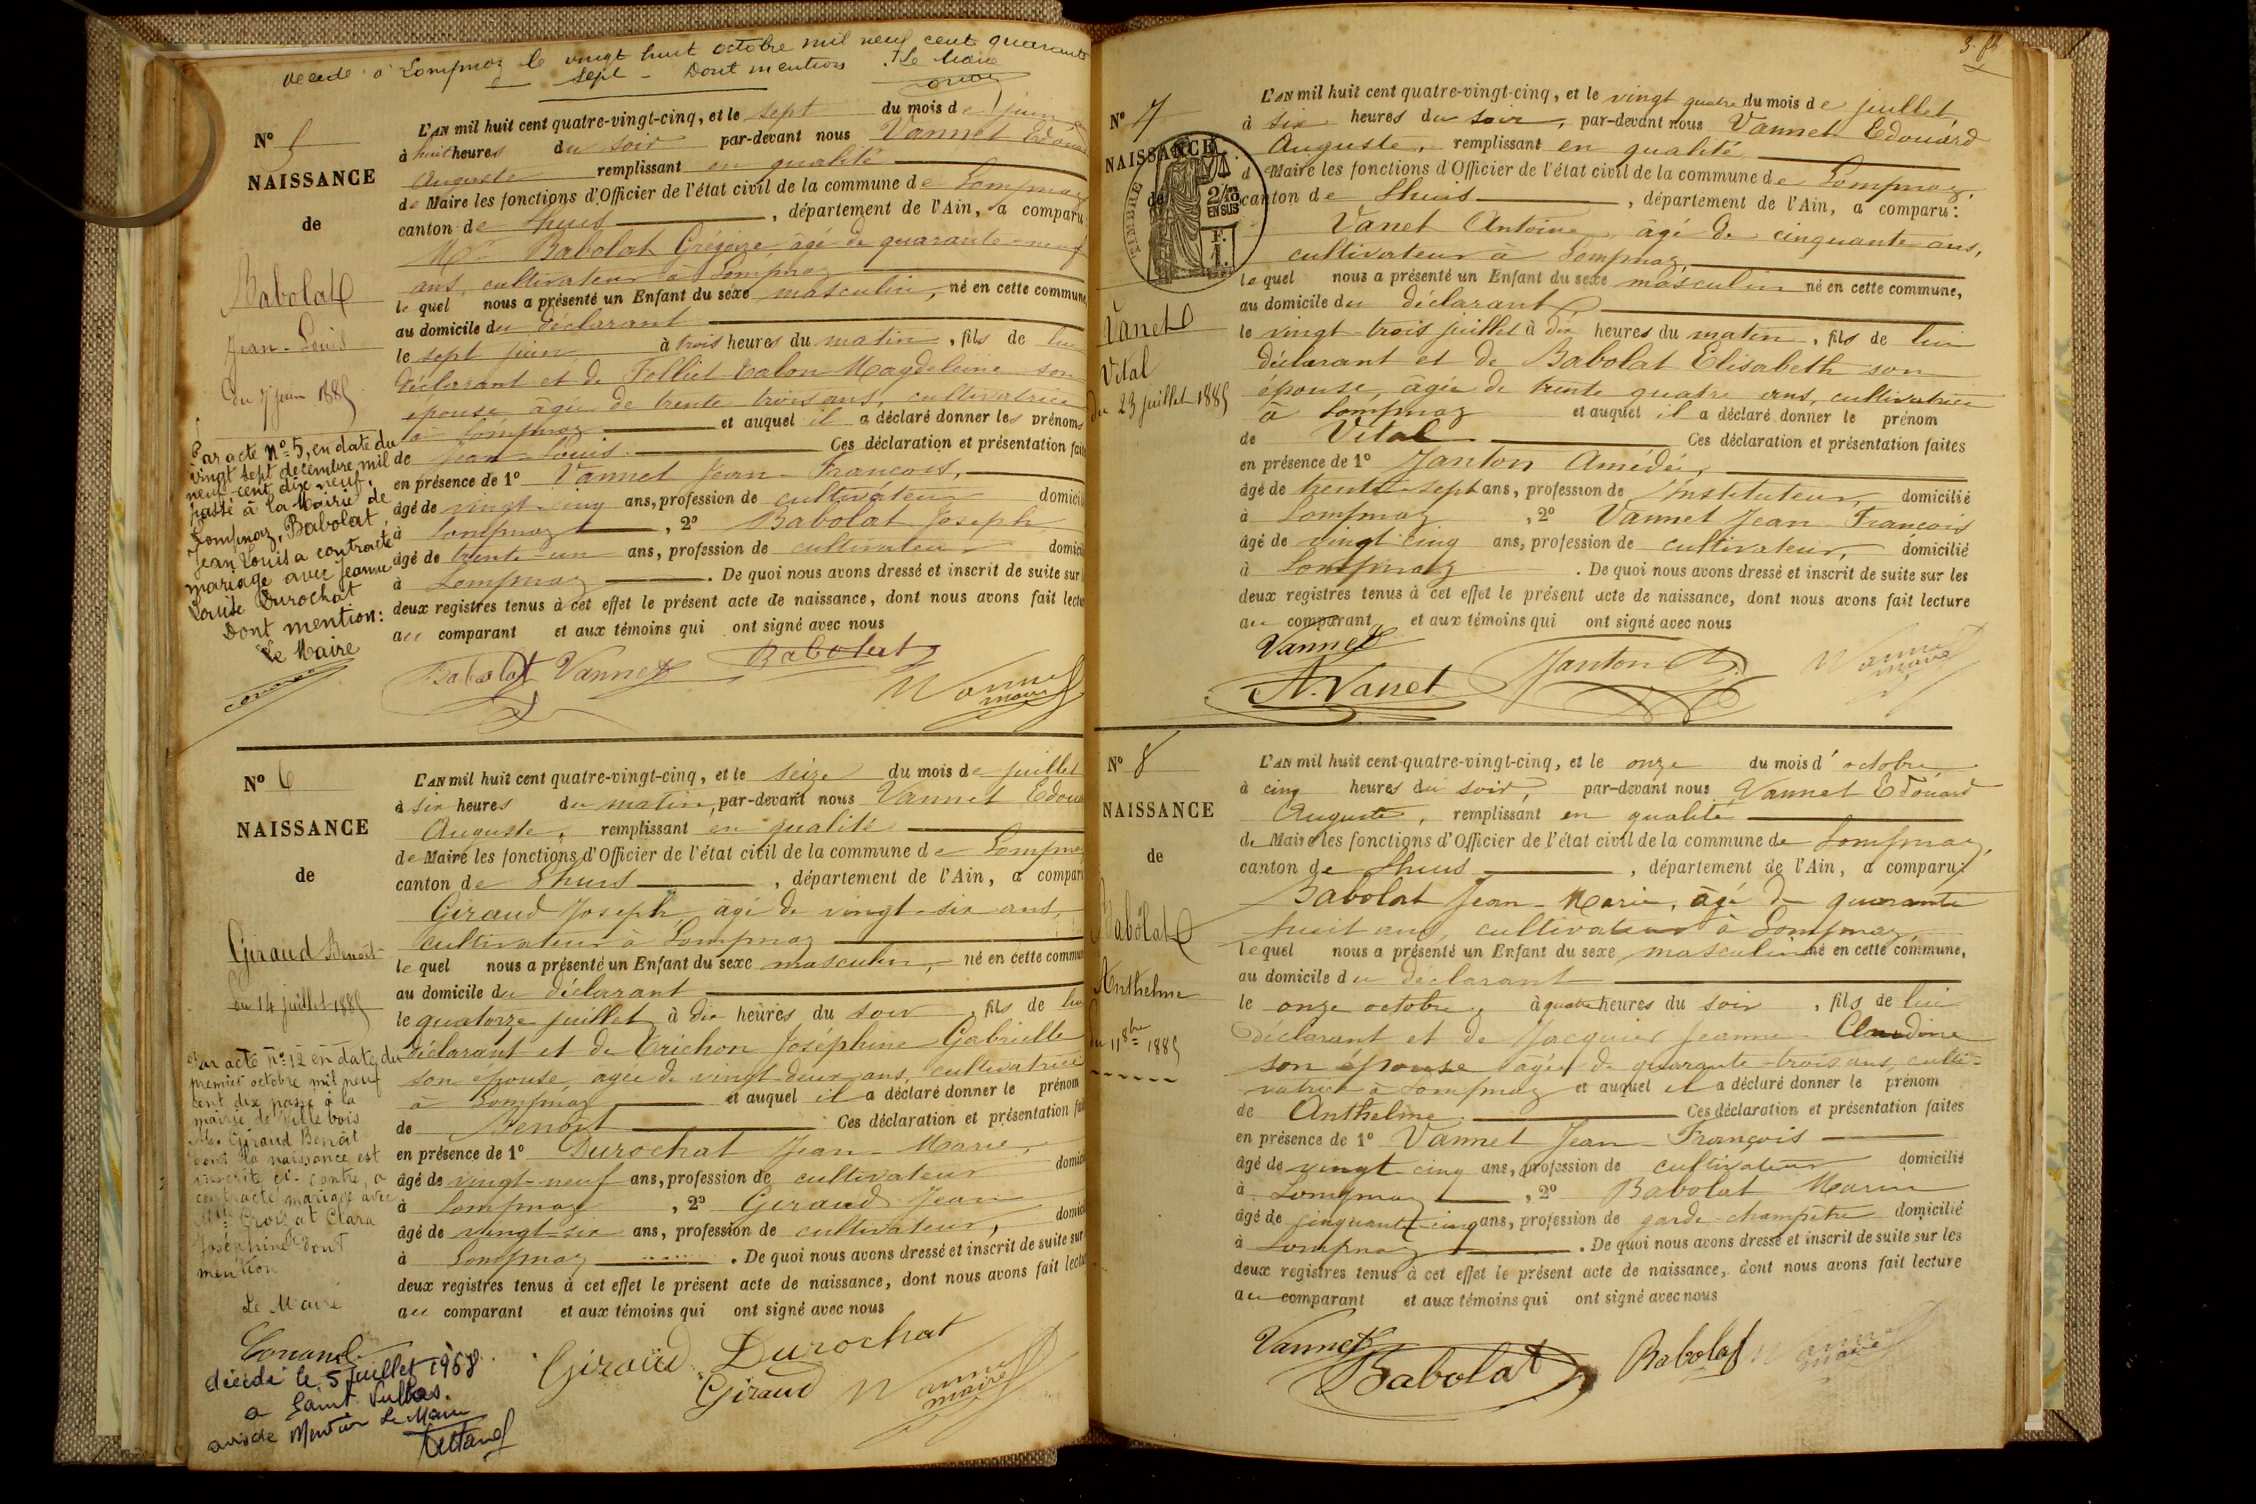 décédé à Lompnaz le vingt huit octobre mil neuf cent quarante
sept - Dont mention. Le Maire
N° 5
NAISSANCE
de
Babolat
Jean-Louis
du 7 juin 1885
Par acte N° 5, en date du
vingt sept décembre mil
neuf-cent dix neuf,
passé à la Mairie de
Lompnaz, Babolat
Jean Louis a contracté
mariage avec Jeanne
Louise Durochat
Dont mention:
Le Maire
L'AN mil huit cent quatre-vingt-cinq, et le sept du mois de juin
à huit heures du soir par-devant nous Vannet Edouard
Auguste remplissant en qualité
de Maire les fonctions d'Officier de l'état civil de la commune de Lompnaz
canton de Lhuis, département de l'Ain, a comparu
Mr Babolat Grégoire, âgé de quarante-neuf
ans, cultivateur à Lompnaz
le quel nous a présenté un Enfant du sexe masculin, né en cette commune,
au domicile du déclarant
le sept juin à trois heures du matin, fils de lui
déclarant et de Folliet Talon Magdeleine son
épouse âgée de trente trois ans, cultivatrice
à Lompnaz et auquel il a déclaré donner les prénoms
de Jean-Louis. Ces déclaration et présentation faites
en présence de 1° Vannet Jean-François,
âgé de vingt-cinq ans, profession de cultivateur domicilié
à Lompnaz, 2° Babolat Joseph
âgé de trente un ans, profession de cultivateur domicilié
à Lompnaz. De quoi nous avons dressé et inscrit de suite sur les
deux registres tenus à cet effet le présent acte de naissance, dont nous avons fait lecture
au comparant et aux témoins qui ont signé avec nous
Babolat Vannet Babolat
Vannet
maire
N° 6
NAISSANCE
de
Giraud Benoît
du 14 juillet 1885
Par acte n° 12 en date du
premier octobre mil neuf
cent dix passé à la
mairie de Villebois
Mr Giraud Benoît
dont la naissance est
inscrite ci-contre, a
contracté mariage avec
Mlle Croizat Clara
Joséphine dont
mention
Le Maire
décédé le 5 juillet 1968
à Saint Vulbas.
avis de Mention Le Maire
L'AN mil huit cent quatre-vingt-cinq, et le seize du mois de juillet
à six heures du matin, par-devant nous Vannet Edouard
Auguste, remplissant en qualité
de Maire les fonctions d'Officier de l'état civil de la commune de Lompnaz
canton de Lhuis, département de l'Ain, a comparu
Giraud Joseph âgé de vingt-six ans,
cultivateur à Lompnaz
le quel nous a présenté un Enfant du sexe masculin, né en cette commune
au domicile du déclarant
le quatorze juillet à dix heures du soir, fils de lui
déclarant et de Trichon Joséphine Gabrielle
son épouse, âgée de vingt-deux ans, cultivatrice
à Lompnaz et auquel il a déclaré donner le prénom
de Benoît Ces déclaration et présentation faites
en présence de 1° Durochat Jean-Marie,
âgé de vingt-neuf ans, profession de cultivateur domicilié
à Lompnaz, 2° Giraud Jean
âgé de vingt-six ans, profession de cultivateur, domicilié
à Lompnaz. De quoi nous avons dressé et inscrit de suite sur
deux registres tenus à cet effet le présent acte de naissance, dont nous avons fait lecture
au comparant et aux témoins qui ont signé avec nous
Giraud Durochat
Giraud Vannet
maire
N° 7
NAISSANCE
de
TIMBRE
2/10 EN SUS
Vanet
Vital
du 23 juillet 1885
L'AN mil huit cent quatre-vingt-cinq, et le vingt quatre du mois de juillet,
à six heures du soir, par-devant nous Vannet Edouard
Auguste, remplissant en qualité
de Maire les fonctions d'Officier de l'état civil de la commune de Lompnaz,
canton de Lhuis, département de l'Ain, a comparu:
Vanet Antoine, âgé de cinquante ans,
cultivateur à Lompnaz,
le quel nous a présenté un Enfant du sexe masculin né en cette commune,
au domicile du déclarant
le vingt-trois juillet à dix heures du matin, fils de lui
déclarant et de Babolat Elisabeth son
épouse, âgée de trente quatre ans, cultivatrice
à Lompnaz et auquel il a déclaré donner le prénom
de Vital Ces déclaration et présentation faites
en présence de 1° Janton Amédée,
âgé de trente-sept ans, profession de Instituteur, domicilié
à Lompnaz, 2° Vannet Jean-François
âgé de vingt cinq ans, profession de cultivateur, domicilié
à Lompnaz. De quoi nous avons dressé et inscrit de suite sur les
deux registres tenus à cet effet le présent acte de naissance, dont nous avons fait lecture
au comparant et aux témoins qui ont signé avec nous
Vannet
A. Vanet Janton Vannet
maire
N° 8
NAISSANCE
de
Babolat
Anthelme
du 11 8bre 1885
L'AN mil huit cent quatre-vingt-cinq, et le onze du mois d'octobre,
à cinq heures du soir, par-devant nous Vannet Edouard
Auguste, remplissant en qualité
de Maire les fonctions d'Officier de l'état civil de la commune de Lompnaz,
canton de Lhuis, département de l'Ain, a comparu:
Babolat Jean-Marie, âgé de quarante
huit ans, cultivateur à Lompnaz,
lequel nous a présenté un Enfant du sexe masculin né en cette commune,
au domicile du déclarant
le onze octobre, à quatre heures du soir, fils de lui
déclarant et de Jacquier Jeanne Claudine
son épouse âgée de quarante-trois ans, culti-
vatrice à Lompnaz et auquel il a déclaré donner le prénom
de Anthelme Ces déclaration et présentation faites
en présence de 1° Vannet Jean-François
âgé de vingt cinq ans, profession de cultivateur domicilié
à Lompnaz, 2° Babolat Marin
âgé de cinquante-cinq ans, profession de garde-champêtre domicilié
à Lompnaz. De quoi nous avons dressé et inscrit de suite sur les
deux registres tenus à cet effet le présent acte de naissance, dont nous avons fait lecture
au comparant et aux témoins qui ont signé avec nous
Vannet
Babolat Babolat Vannet
maire